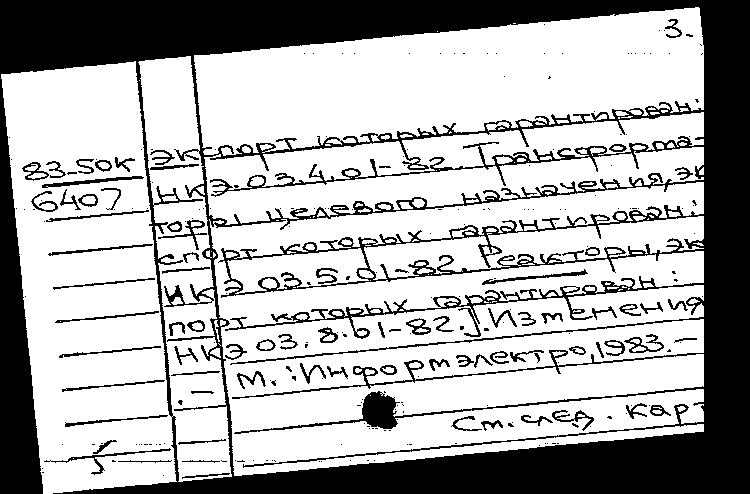 3.
экспорт которых гарантирован:
83-50к
НКЭ.03.4.01-82. Трансформа-
6407
торы целевого назначения, эк
спорт которых гарантирован:
ИКЭ 03.5.01-82. Реакторы, эк
порт которых гарантирован:
НКЭ 03.8.01-82.]. Изменения
.— М.: Информэлектро, 1983.—
См. след. карт